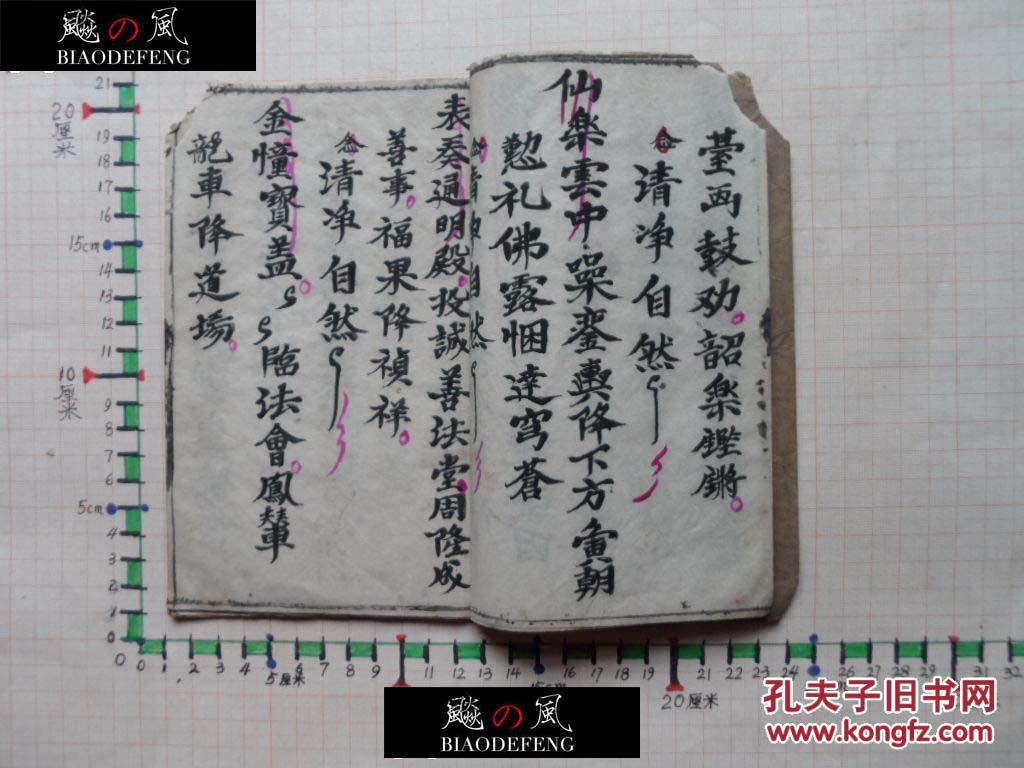 飈の風
BIAODEFENG
臺画鼓劝。韶楽鏗鏘。
念清净自然
仙樂雲中噪鑾輿降下方寅朝
懃礼佛露悃達穹蒼
念清净自然
表奏通明殿。投誠善法堂周隆成
善事。福果降禎祥。
念清净自然
金幢寶盖。臨法會。鳳輦
龍車降道場。
21
20
厘米
19
18
17
16
15cm
14
13
12
11
10
厘米
9
8
7
6
5cm
4
3
2
1
0
0 0 1 2 3 4 5厘米 6 7 8 9 11 12 13 14 15cm 16 17 18 19 20厘米 21 22 23 24 26 27 28 29 31 32
飈の風
BIAODEFENG
孔夫子旧书网
www.kongfz.com